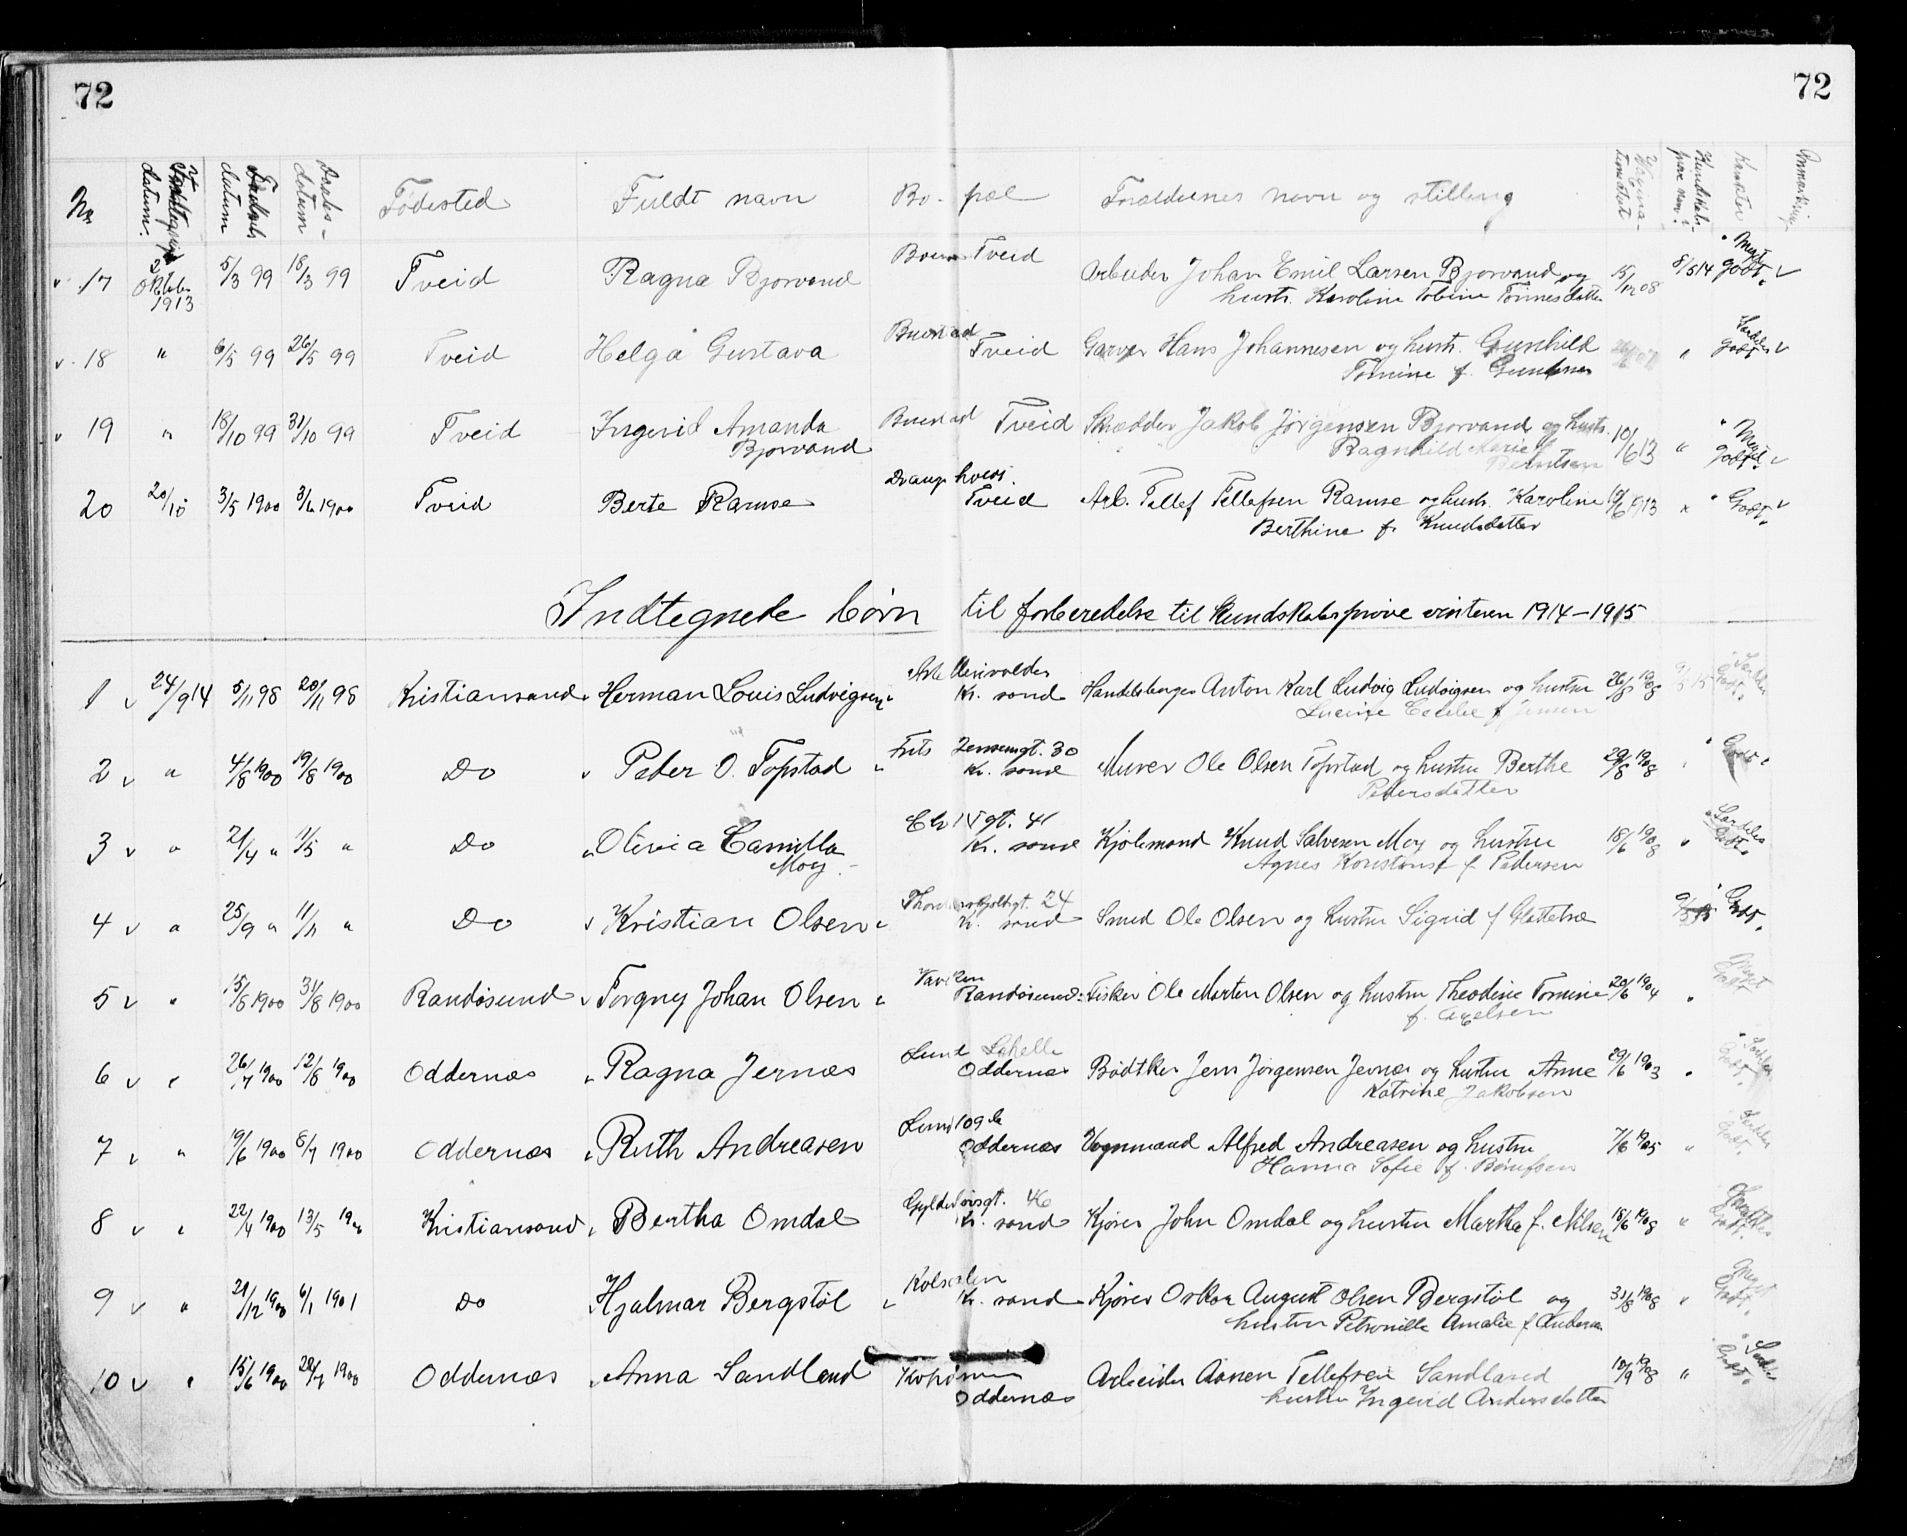 72 72
No. Indtegnings datum. Fødsels datum Daabs-datum Fødested Fuldt navn Bo-pæl Forældrenes navn og stilling Vaccina-tionsdat. Kundskabs-prøve naar? Karakter Anmærkning
17 2 Oktober 1913 5/3 99 18/3 99 Tveid Ragna Bjorvand Tveid Arbeider Johan Emil Larsen Bjorvand og 15/12 08 8/5 14 Meget
hustr. Karoline Tobine Tønnesdatter godt.
18 " 6/5 99 26/5 99 Tveid Helga Gustava Buestad Tveid Garver Hans Johannesen og hustr. Gunhild " Særdeles
Tomine f. godt
19 " 18/10 99 31/10 99 Tveid Ingerid Amanda Buestad Tveid Skrædder Jakob Jørgensen Bjorvand og hustr. 10/6 13 " Meget
Bjorvand Ragnhild Marie f. Berntsen godt.
20 20/10 3/5 1900 3/6 1900 Tveid Berte Ramse Drangsholt Tveid Arb. Tellef Tellefsen Ramse og hustr. Karoline 10/6 1913 " Godt.
Berthine f. Knudsdatter
Indtegnede børn til forberedelse til kundskabsprøve vinteren 1914–1915
1 24/9 14 5/11 98 20/11 98 Kristiansand Herman Louis Ludvigsen Kr. sand Handelsborger Anton Karl Ludvig Ludvigsen og hustru 26/8 1908 9/5 15 Særdeles
Lucine Cecilie f. Jensen Godt.
2 " 4/8 1900 19/8 1900 Do Peder O. Topstad Frits Jensensgt. 30 Kr. sand Murer Ole Olsen Topstad og hustru Berthe 29/8 1908 " Godt
Pedersdatter
3 " 21/4 " 1/5 " Do Olivia Camilla Moy Chr IV gt. 41 Kr. sand Kjølemand Knud Salvesen Moy og hustru 18/6 1908 " Særdeles
Agnes Konstanse f. Pedersen Godt.
4 " 25/9 " 11/11 " Do Kristian Olsen Thordenskjoldsgt. 24 Kr. sand Smed Ole Olsen og hustru Sigrid f. Glattetræ 9/5 15 Godt.
5 " 15/8 1900 31/8 1900 Randøsund Torgny Johan Olsen Randøsund Fisker Ole Martin Olsen og hustru Theodine Tomine 20/6 1904 " Meget
f. Axelsen godt
6 " 26/7 1900 12/8 1900 Oddernæs Ragna Jernæs Lund Lahelle Oddernæs Bødtker Jens Jørgensen Jernæs og hustru Anne 29/6 1903 " Særdeles
Katrine Jakobsen Godt.
7 " 19/6 1900 8/7 1900 Oddernæs Ruth Andreasen Lund 109 b Oddernæs Vognmand Alfred Andreasen og hustru 7/6 1905 " Særdeles
Hanna Sofie f. Godt.
8 " 22/4 1900 13/5 1900 Kristiansand Bertha Omdal Gyldenløvsgt. 46 Kr. sand Kjører John Omdal og hustru Martha f. Nilsen 18/6 1908 "
Godt.
9 " 21/12 1900 6/1 1901 Do Hjalmar Bergstøl Kolsdalen Kr. sand Kjører Oskar August Olsen Bergstøl og 31/8 1908 " Meget
hustru Petronille Amalie f. Andersen Godt.
10 " 15/6 1900 22/7 1900 Oddernæs Anna Sandland Oddernæs Arbeider Aanen Tellefsen Sandland 10/9 1908 " Særdeles
hustru Ingerid Andersdatter Godt.